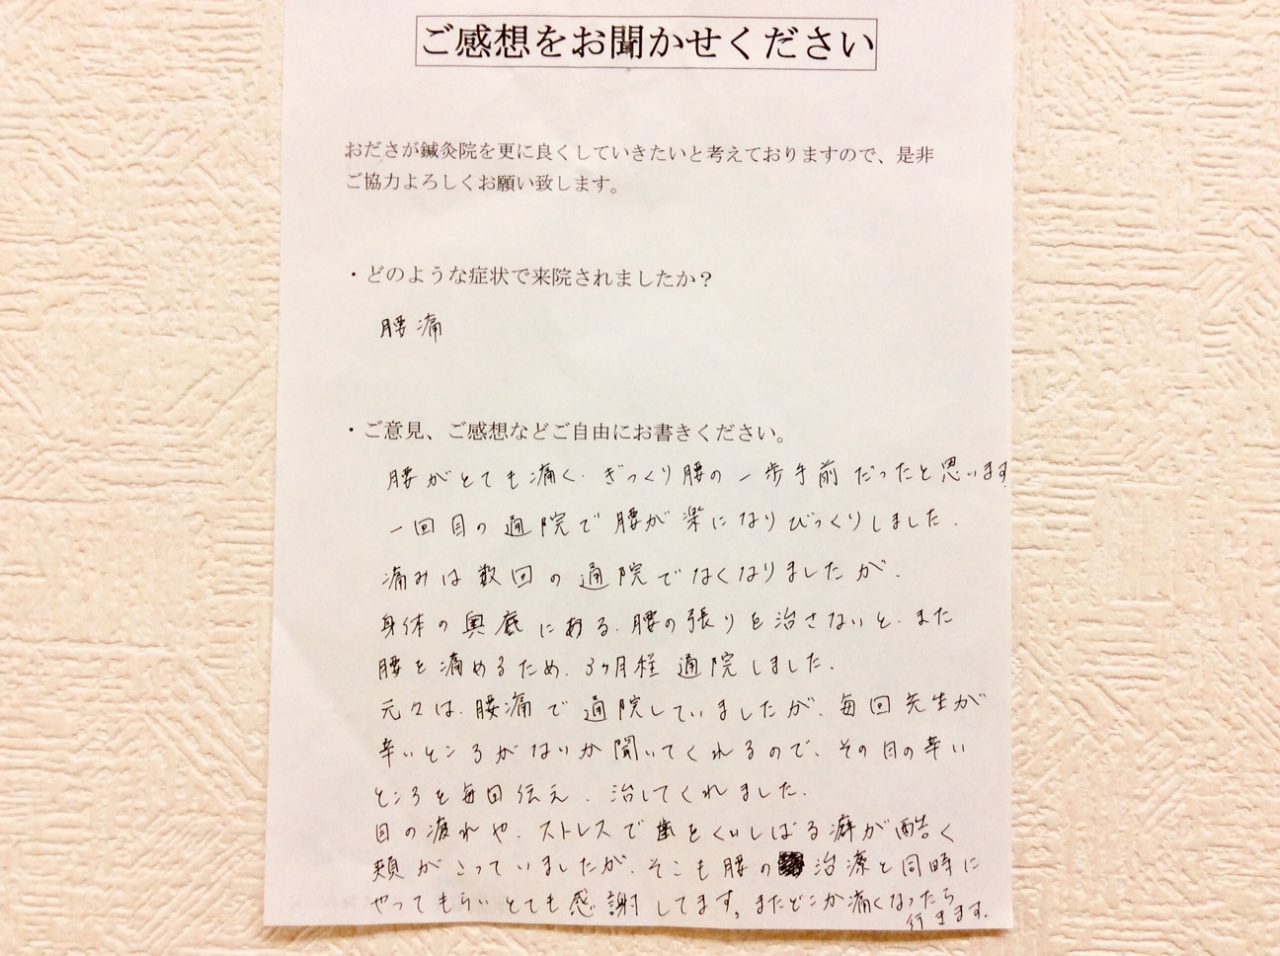 ご感想をお聞かせください
おださが鍼灸院を更に良くしていきたいと考えておりますので、是非
ご協力よろしくお願い致します。
・どのような症状で来院されましたか？
腰痛
・ご意見、ご感想などご自由にお書きください。
腰がとても痛く、ぎっくり腰の一歩手前だったと思います
一回目の通院で腰が楽になりびっくりしました。
痛みは数回の通院でなくなりましたが、
身体の奥底にある、腰の張りを治さないと、また
腰を痛めるため、3ヶ月程通院しました。
元々は、腰痛で通院していましたが、毎回先生が
辛いところがないか聞いてくれるので、その日の辛い
ところを毎回伝え、治してくれました。
目の疲れや、ストレスで歯をくいしばる癖が酷く
頬がこっていましたが、そこも腰の治療と同時に
やってもらいとても感謝してます。またどこか痛くなったら
行きます。